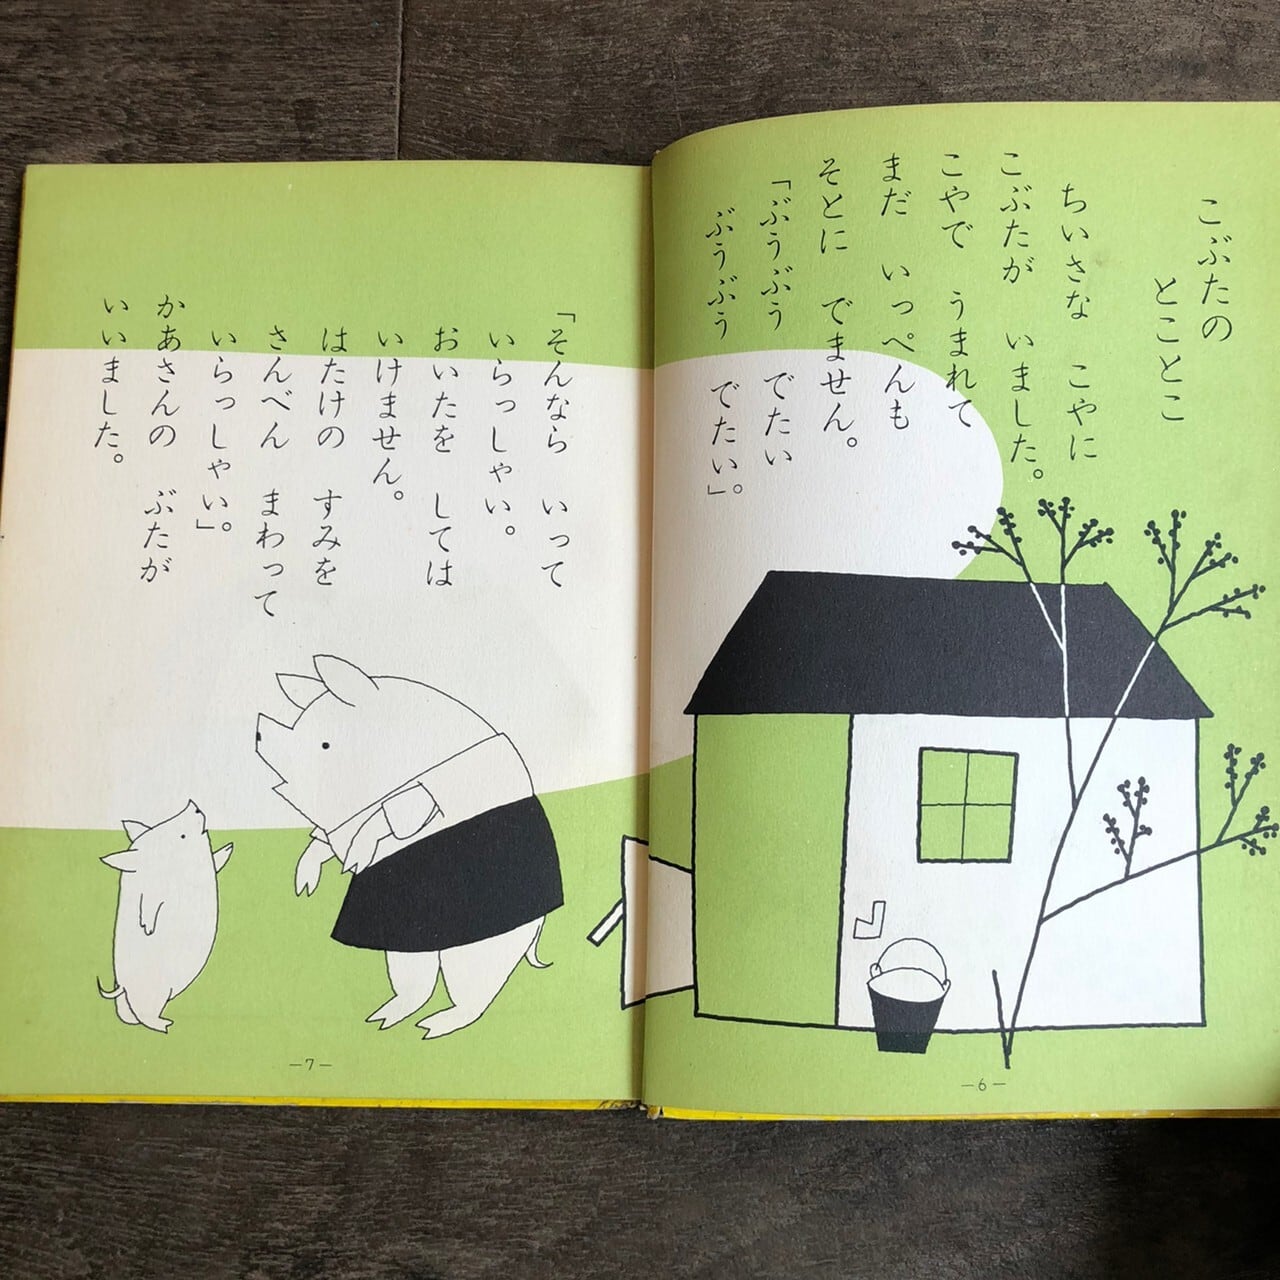 こぶたの
とことこ
ちいさな こやに
こぶたが いました。
こやで うまれて
まだ いっぺんも
そとに でません。
「ぶうぶう でたい
ぶうぶう でたい」。
—6—
「そんなら いって
いらっしゃい。
おいたを しては
いけません。
はたけの すみを
さんべん まわって
いらっしゃい」。
かあさんの ぶたが
いいました。
—7—